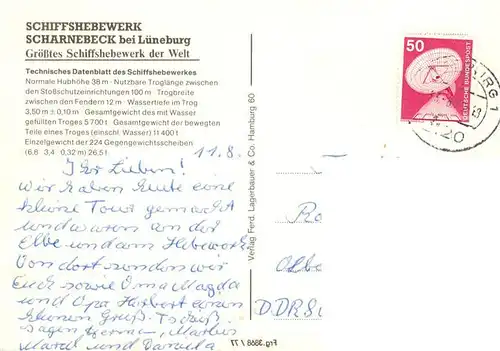 SCHIFFSHEBEWERK
SCHARNEBECK bei Lüneburg
Größtes Schiffshebewerk der Welt
Technisches Datenblatt des Schiffshebewerkes
Normale Hubhöhe 38 m · Nutzbare Troglänge zwischen
den Stoßschutzeinrichtungen 100 m · Trogbreite
zwischen den Fendern 12 m · Wassertiefe im Trog
3,50 m ± 0,10 m · Gesamtgewicht des mit Wasser
gefüllten Troges 5 700 t · Gesamtgewicht der bewegten
Teile eines Troges (einschl. Wasser) 11 400 t
Einzelgewicht der 224 Gegengewichtsscheiben
(6,8 · 3,4 · 0,32 m) 26,5 t
11.8.
Ihr Lieben!
Wir haben heute eine
kleine Tour gemacht
und waren an der
Elbe und am Hebewerk
Von dort senden wir
Euch sowie Oma Magda
und Opa Herbert einen
kleinen Gruß. Tschüß
sagen Marlies
und Daniela
Verlag Ferd. Lagerbauer & Co. Hamburg 60
50
DEUTSCHE BUNDESPOST
DDR
Frg. 3568 / 77